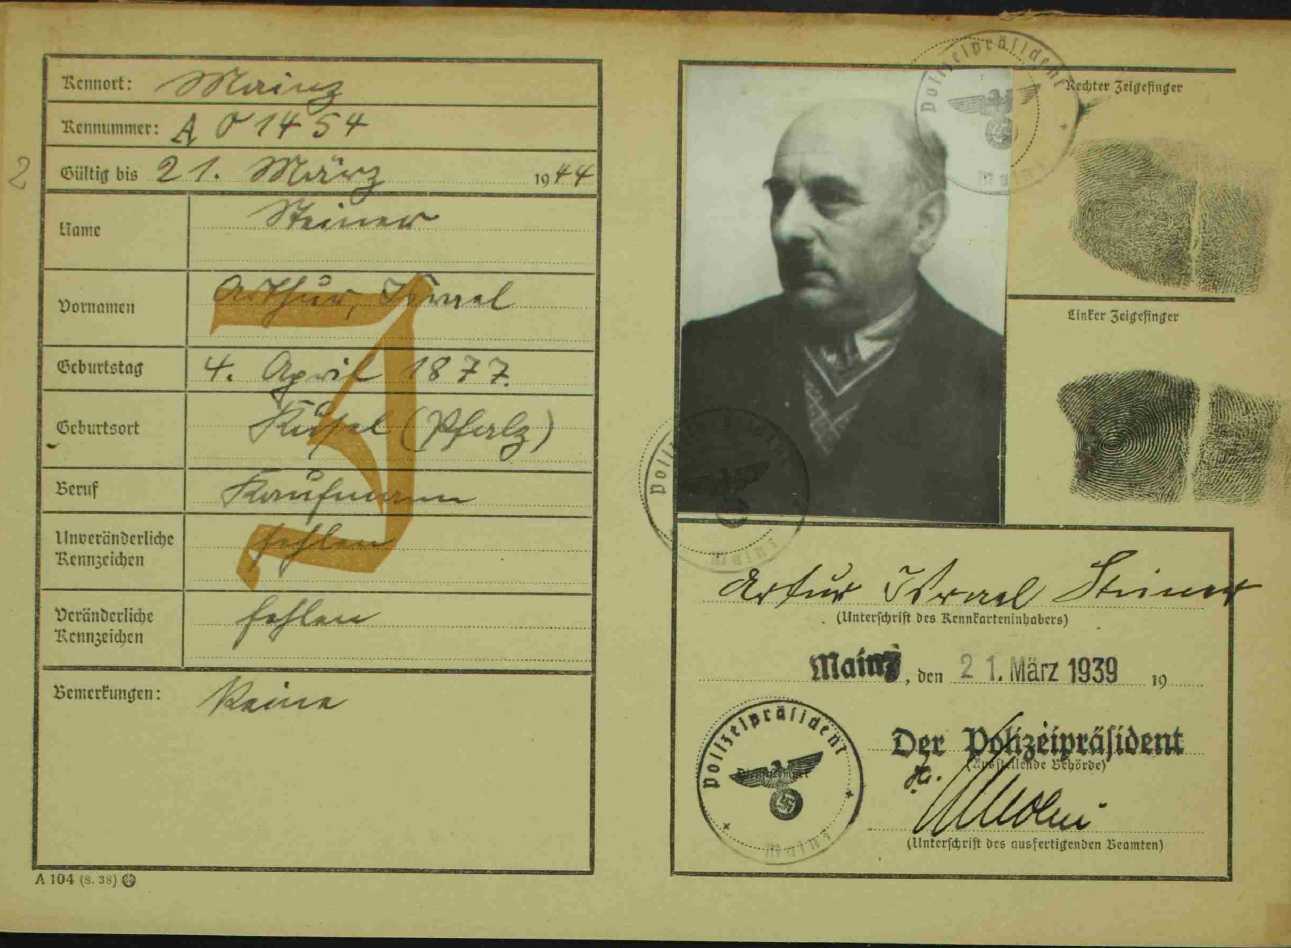 2
Kennort: Mainz
Kennummer: A 01454
Gültig bis 21. März 1944
Name Steiner
Vornamen Arthur, Israel
Geburtstag 4. April 1877.
Geburtsort Kusel (Pfalz)
Beruf Kaufmann
Unveränderliche
Kennzeichen fehlen
Veränderliche
Kennzeichen fehlen
Bemerkungen: Keine
J
A 104 (8. 38)
Polizeipräsident
Mainz
Rechter Zeigefinger
Linker Zeigefinger
Polizeipräsident
Mainz
Artur Israel Steiner
(Unterschrift des Kennkarteninhabers)
Mainz, den 21. März 1939 19
Polizeipräsident
Mainz
Der Polizeipräsident
(Ausstellende Behörde)
(Unterschrift des ausfertigenden Beamten)